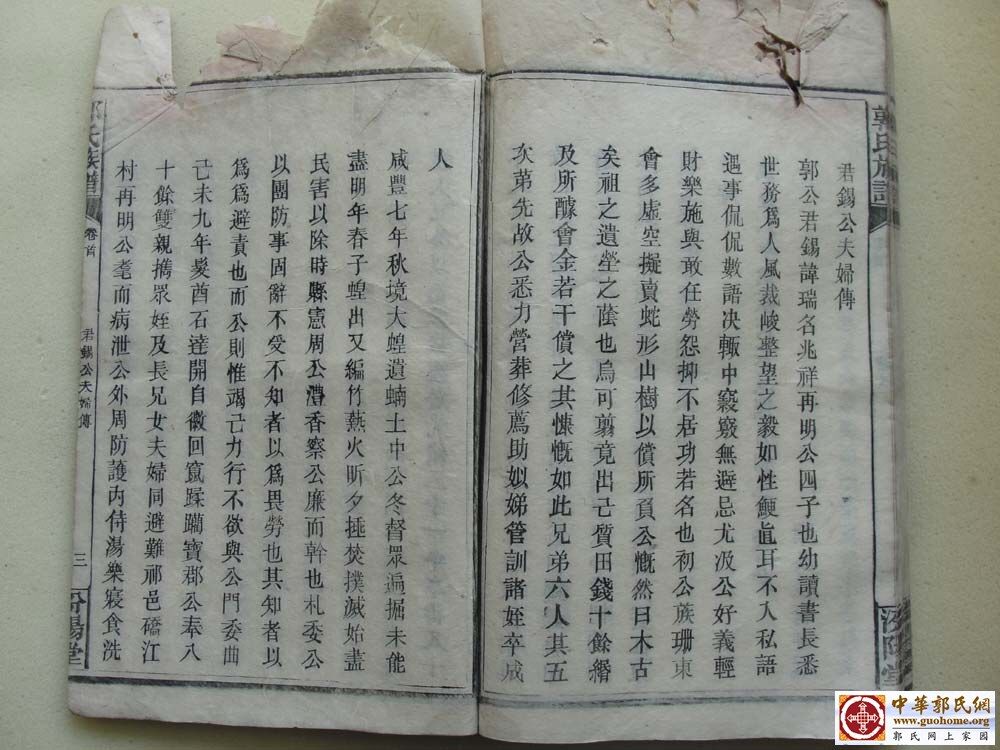 郭氏族譜
汾陽堂
君錫公夫婦傳
郭公君錫諱瑞名兆祥再明公四子也幼讀書長悉
世務爲人風裁峻整望之毅如性鯁眞耳不入私語
遇事侃侃數語决輒中竅竅無避忌尤汲公好義輕
財樂施與敢任勞怨抑不居功若名也初公族珊東
會多虛空擬賣蛇形山樹以償所負公慨然曰木古
矣祖之遺塋之蔭也烏可翦竟出己質田錢十餘緡
及所醵會金若干償之其慷慨如此兄弟六人其五
次第先故公悉力營葬修薦助姒娣管訓諸姪卒咸
人
咸豐七年秋境大蝗遺蝻土中公冬督眾遍掘未能
盡明年春子蝗出又編竹爇火昕夕捶焚撲滅始盡
民害以除時縣憲周公漕香察公廉而幹也札委公
以團防事固辭不受不知者以爲畏勞也其知者以
爲爲避責也而公則惟竭己力行不欲與公門委曲
己未九年髮酋石達開自徽回竄蹂躪寶郡公奉八
十餘雙親擕眾姪及長兄女夫婦同避難祁邑礄江
村再明公耄而病泄公外周防護內侍湯樂寢食洗
郭氏族譜
卷首
君錫公夫婦傳
三
汾陽堂
中華郭氏網
www.guohome.org
郭氏网上家园